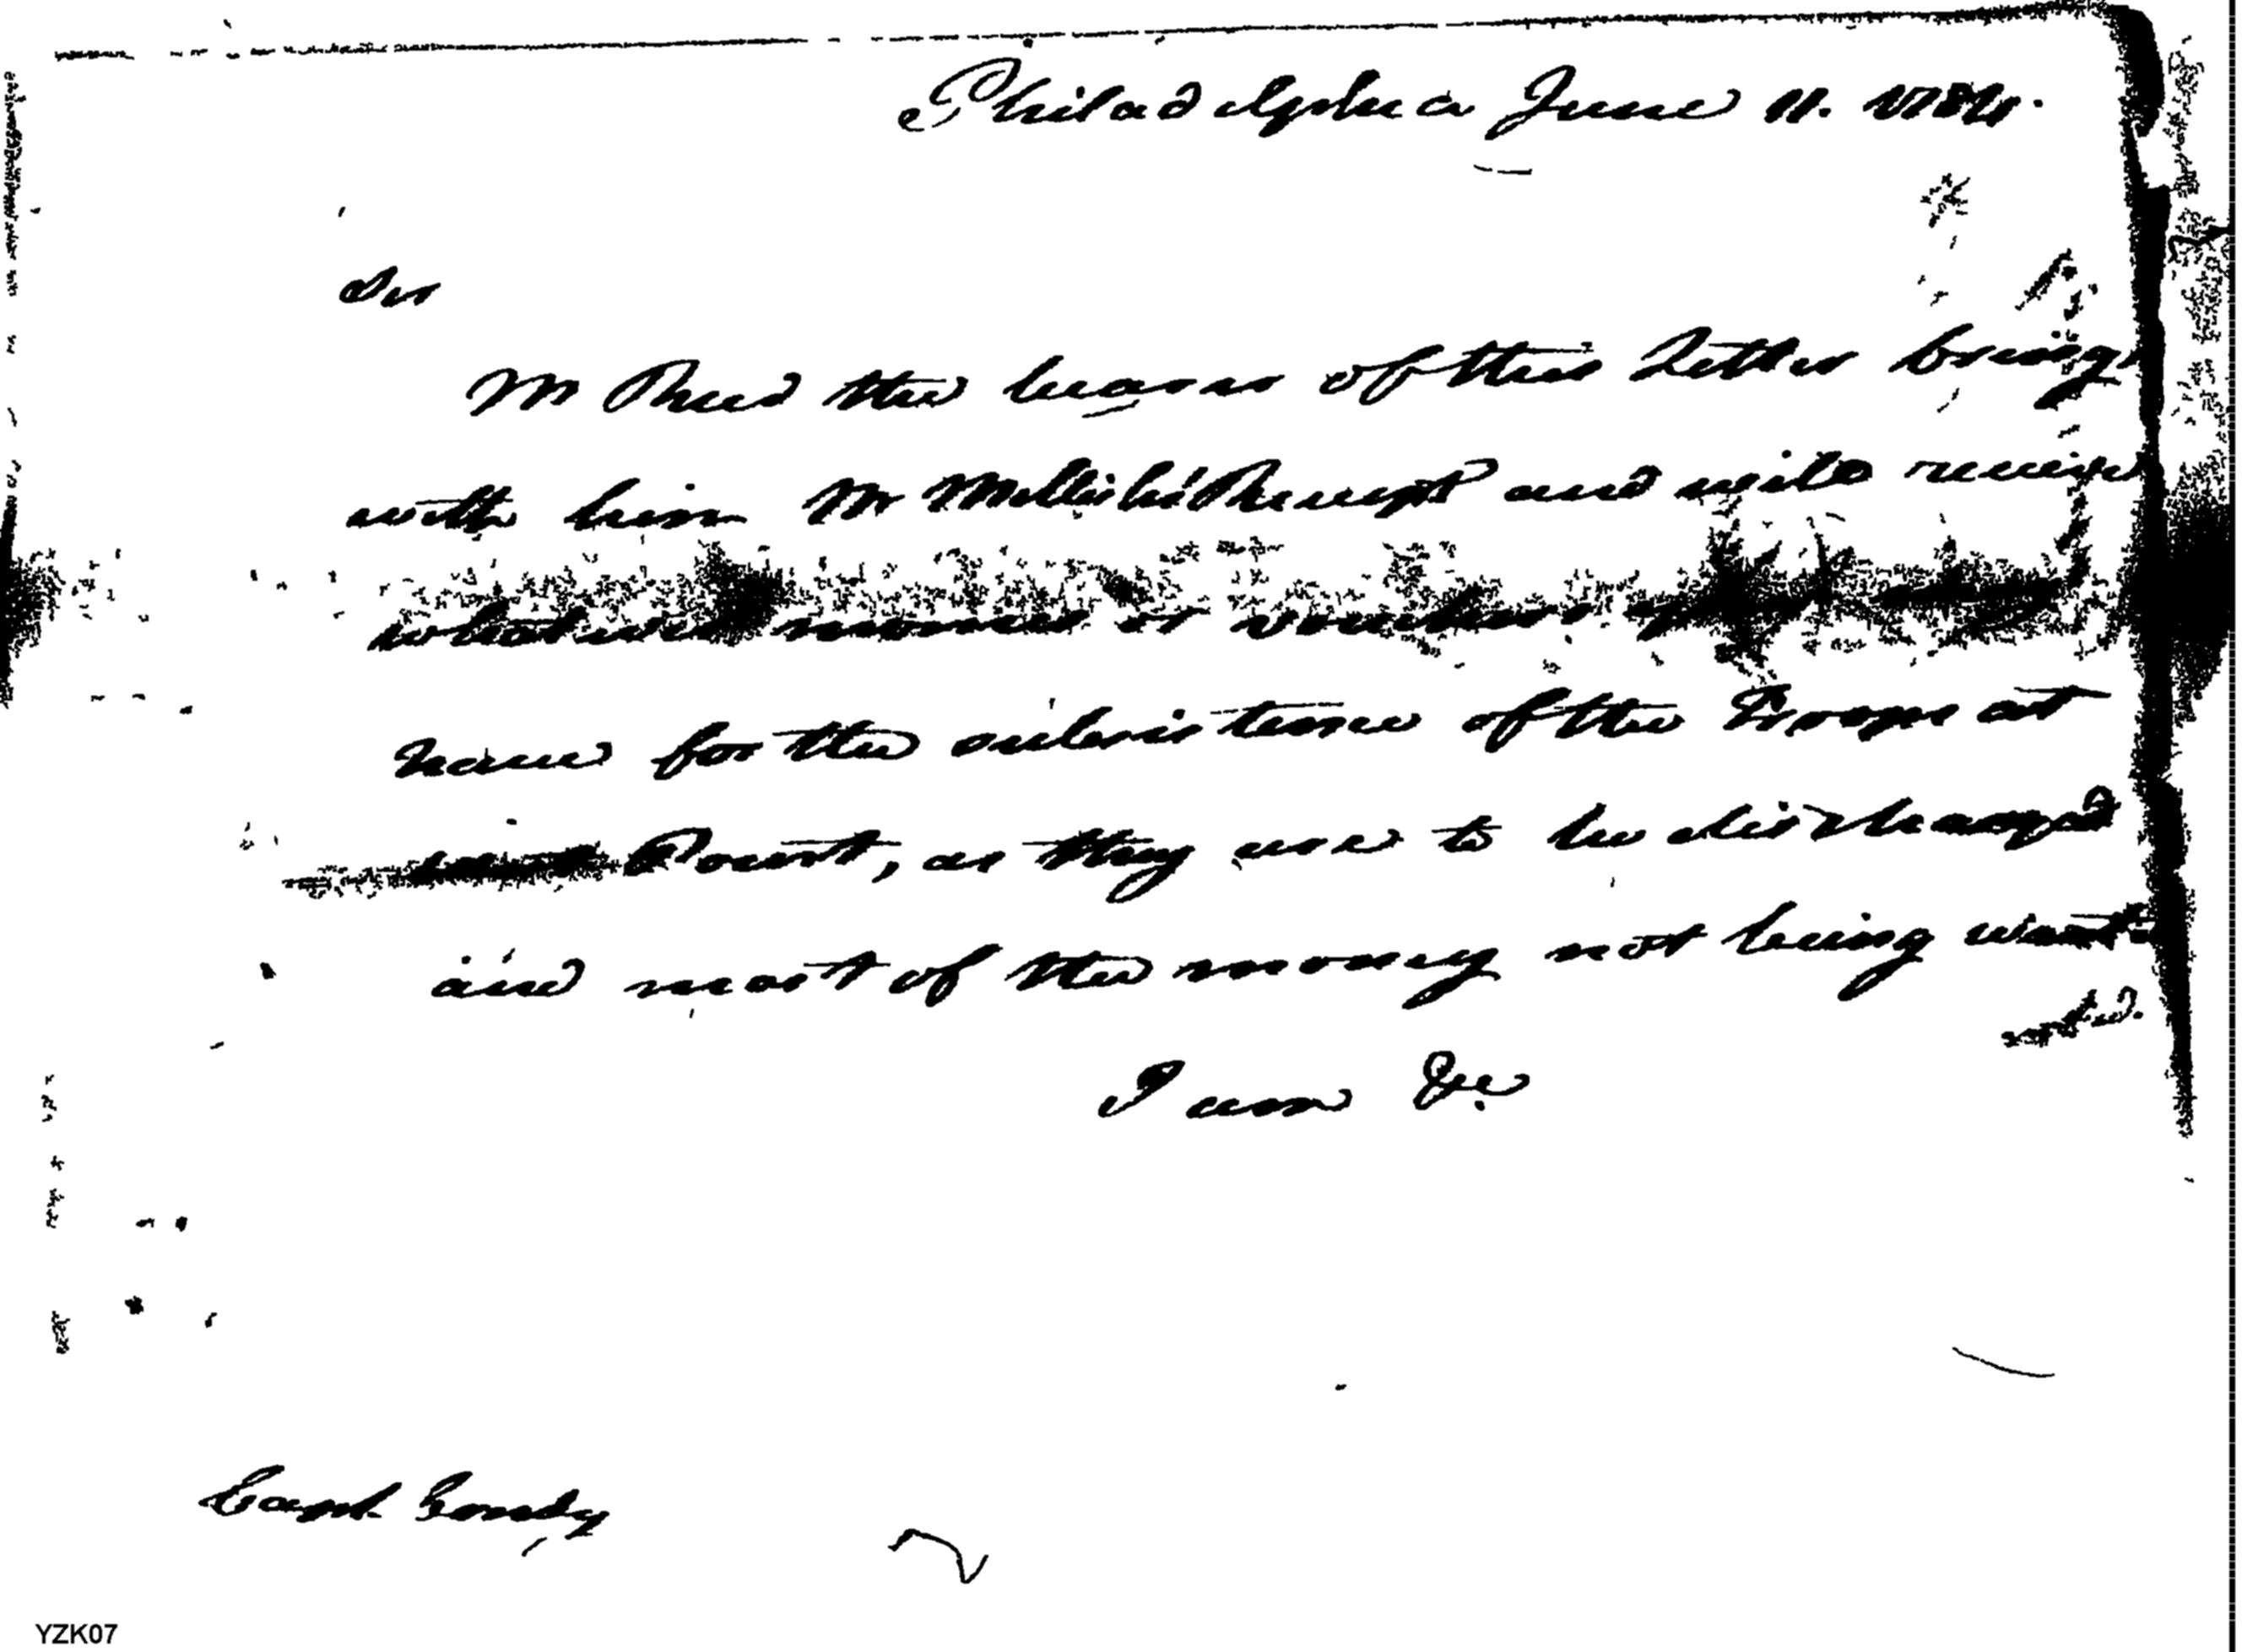 Philadelphia June 11. 1784.
Sir
Mr the bearer of this Letter brings
with him Mr Receipt and will receive
whatever monies or vouchers
have for the subsistence of the Troops at
west Point, as they are to be discharged
and most of the money not being want
ed.
I am &c
Capt.
YZK07